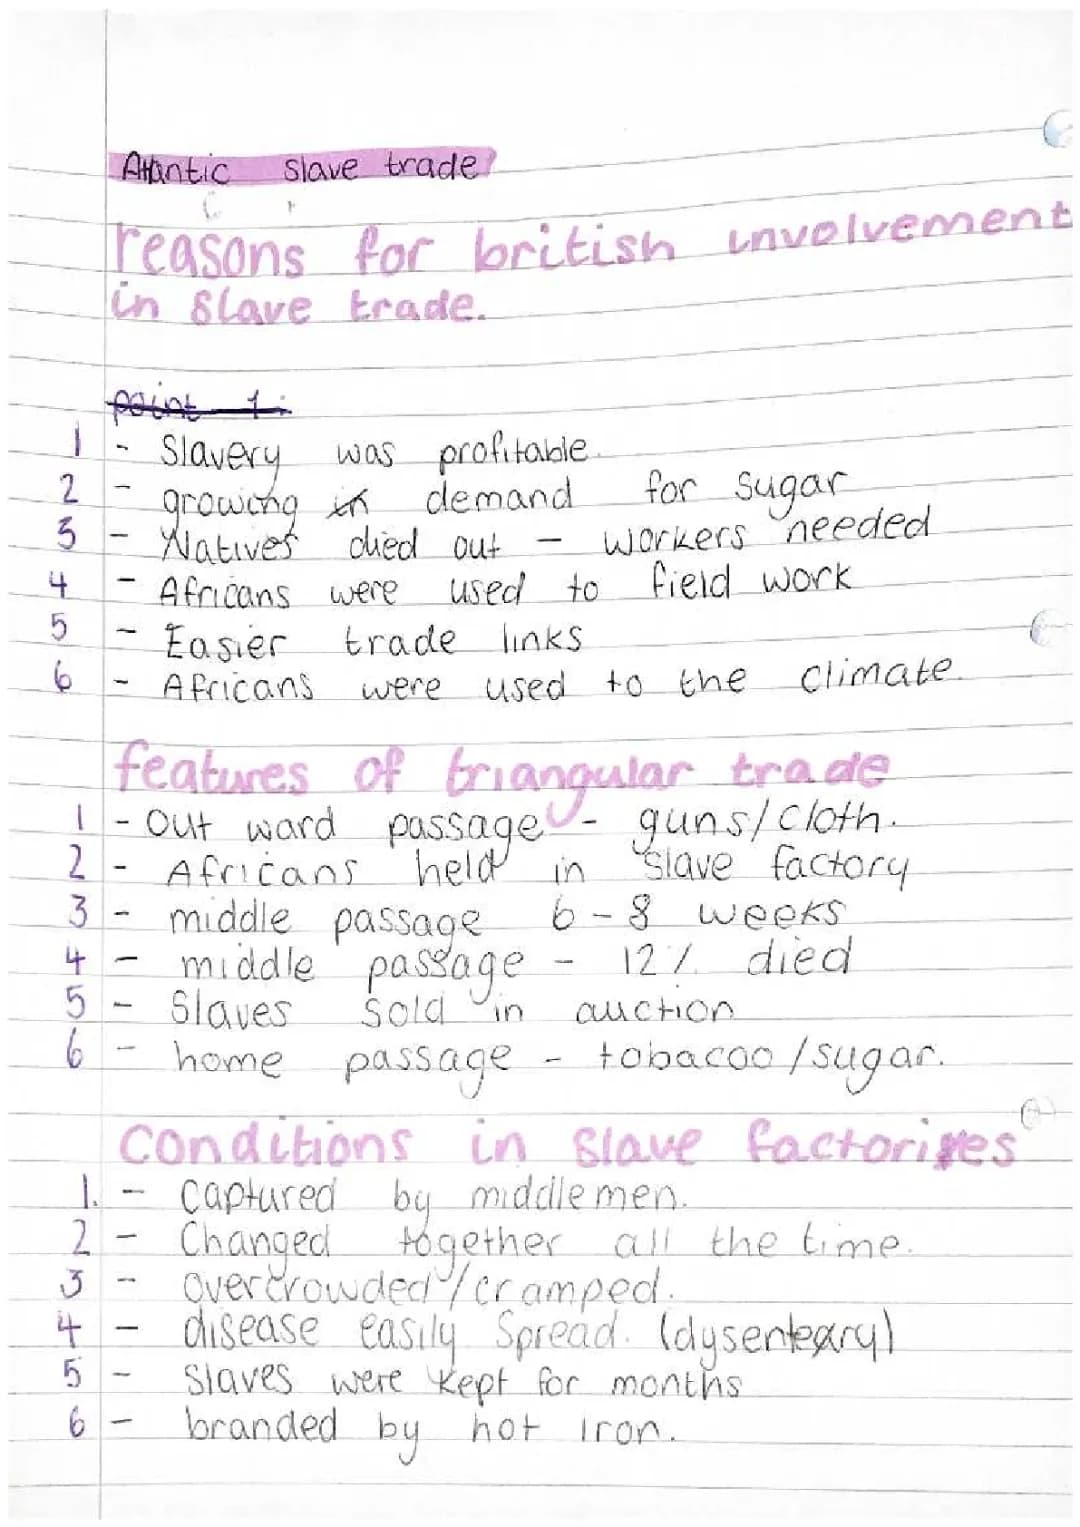 Atlantic slave trade
reasons for british involvement
in slave trade.
point 1:
1 - Slavery was profitable.
2 - growing in demand for sugar
3 - Natives died out - workers needed
4 - Africans were used to field work
5 - Easier trade links
6 - Africans were used to the climate.
features of triangular trade
1 - Out ward passage - guns/cloth.
2 - Africans held in slave factory
3 - middle passage 6-8 weeks
4 - middle passage - 12% died
5 - Slaves sold in auction
6 - home passage - tobacoo/sugar.
Conditions in slave factories
1. - Captured by middlemen.
2 - Changed together all the time.
3 - overcrowded/cramped.
4 - disease easily spread. (dysenteary)
5 - Slaves were kept for months
6 - branded by hot iron.